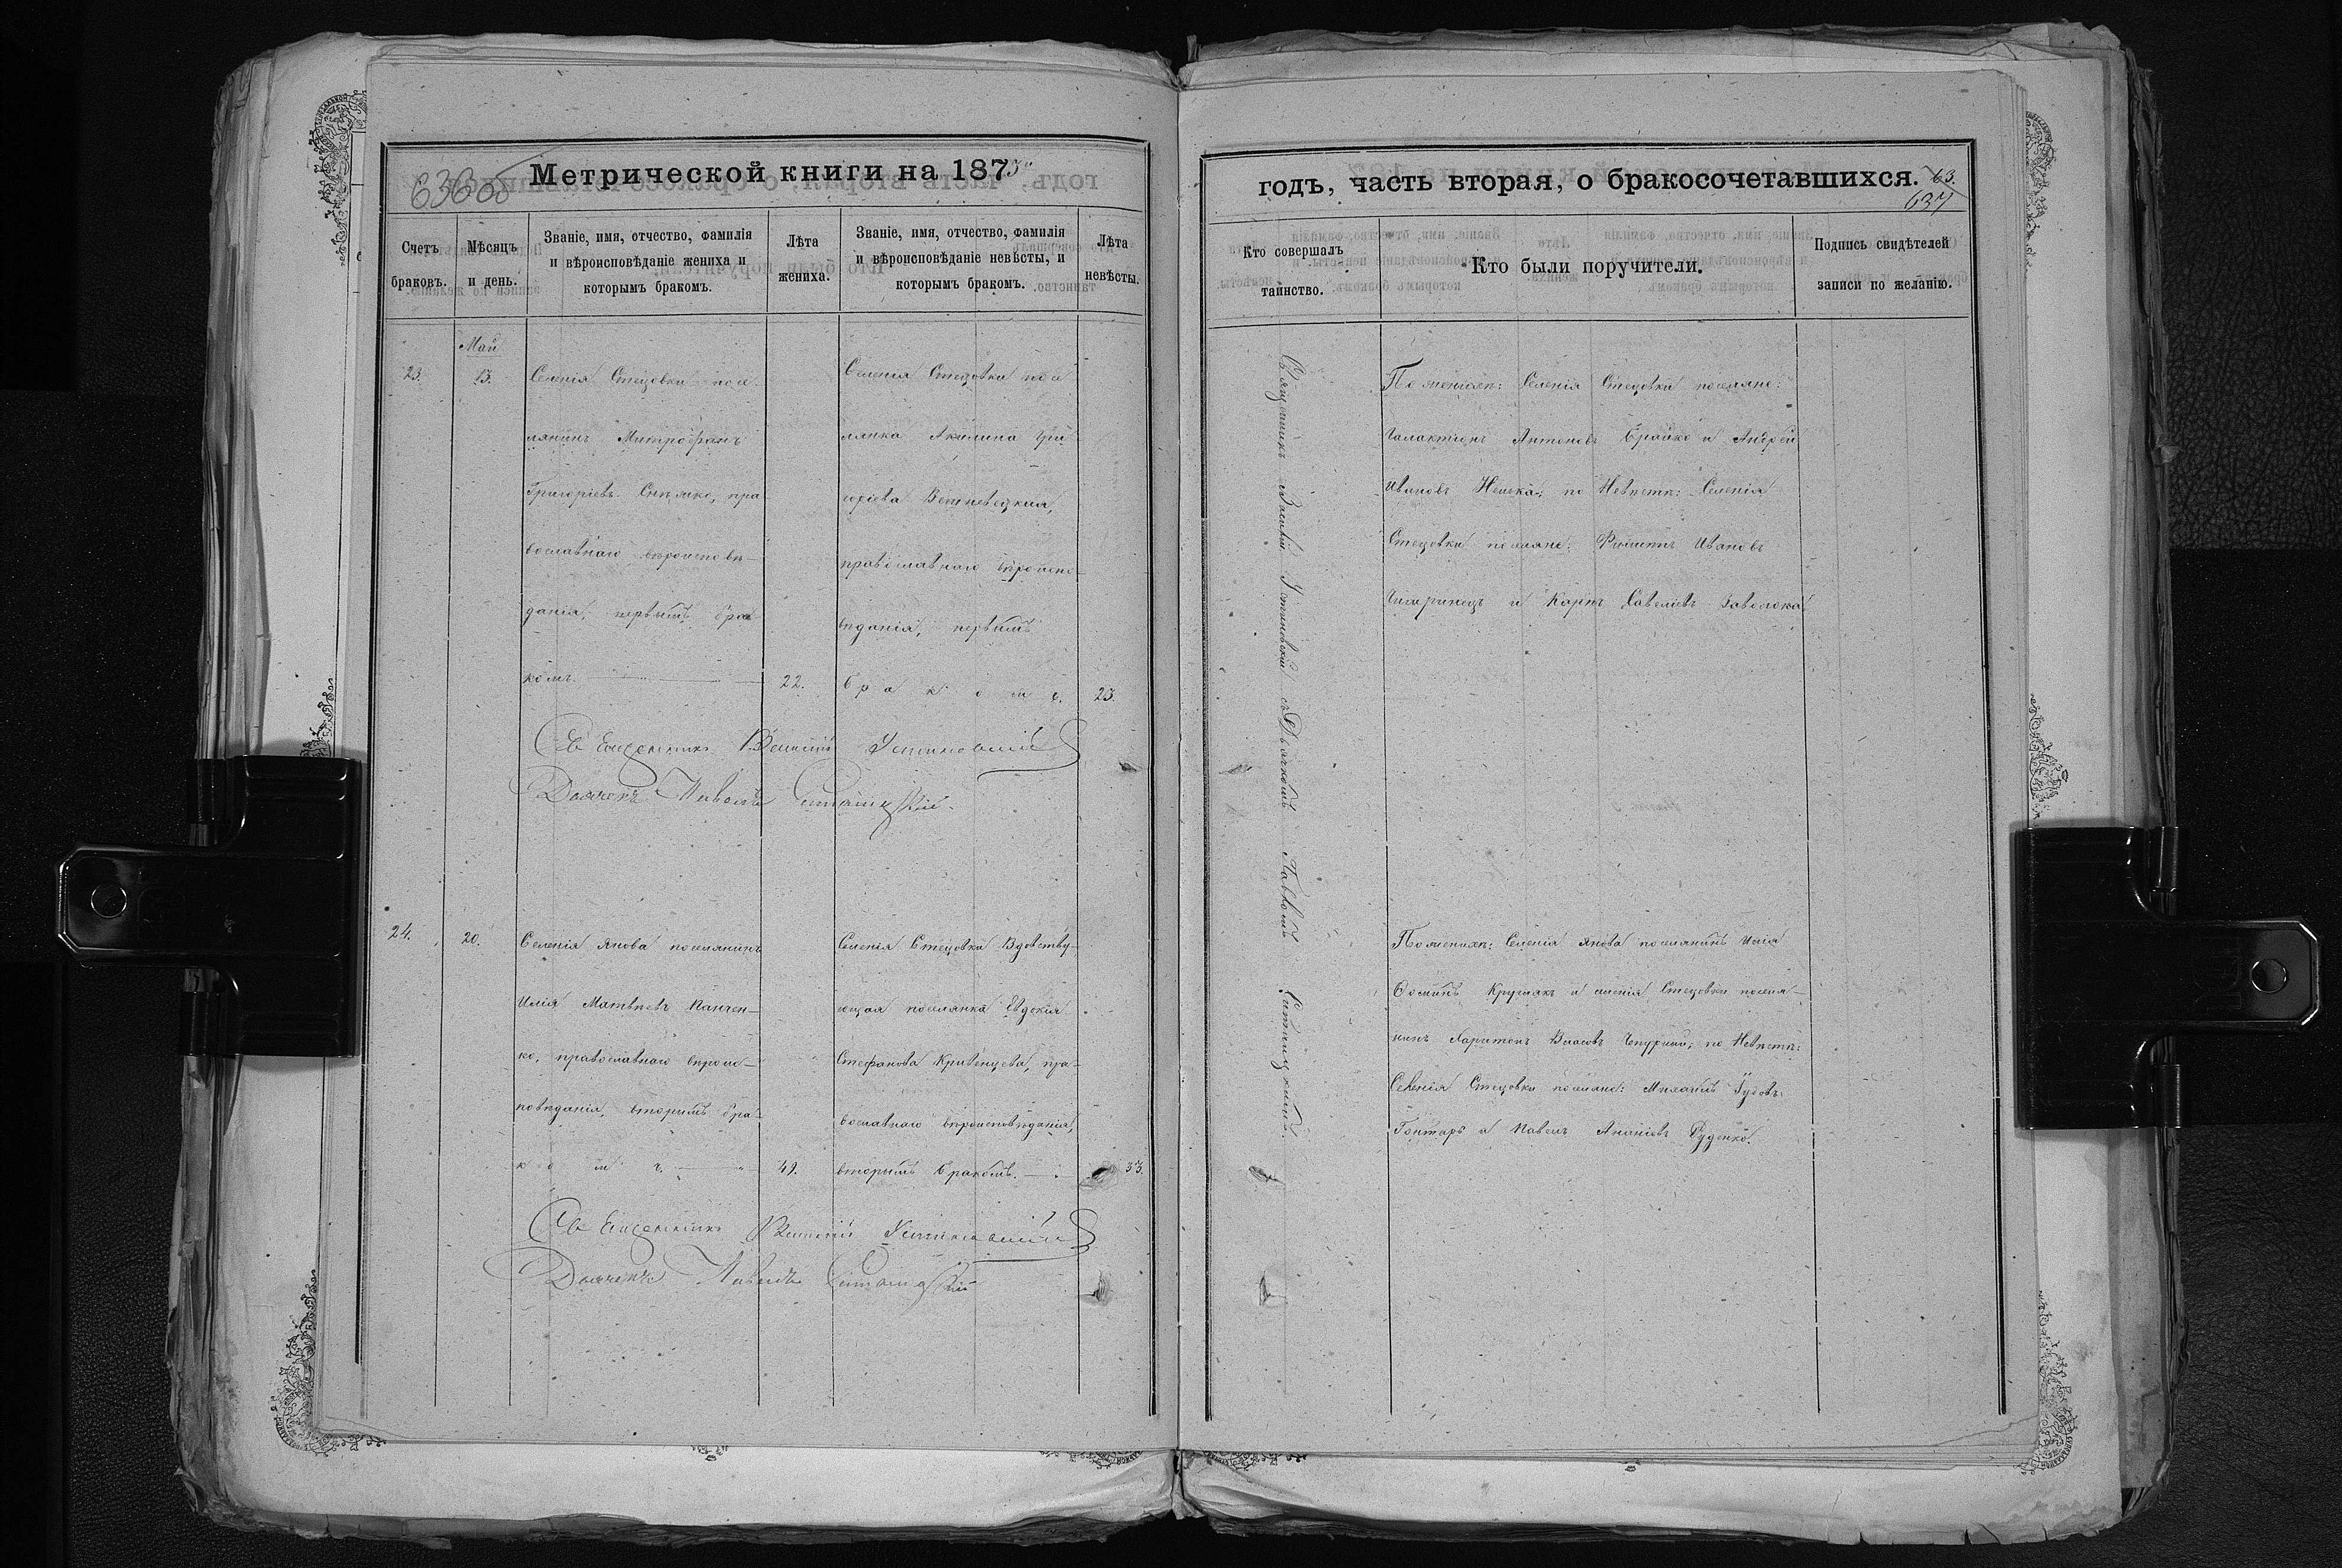 636 об
Метрической книги на 1875
Счетъ браковъ.
Мѣсяцъ и день.
Званіе, имя, отчество, фамилія и вѣроисповѣданіе жениха и которымъ бракомъ.
Лѣта жениха.
Званіе, имя, отчество, фамилія и вѣроисповѣданіе невѣсты, и которымъ бракомъ.
Лѣта невѣсты.
Май
23.
13.
Селенія Стецовки посе
лянинъ Митрофанъ
Григоріевъ пра
вославнаго вѣроисповѣ-
данія, первымъ бра
комъ.
22.
Селенія Стецовки посе
лянка Акилина Гри
горіева
православнаго вѣроиспо-
вѣданія, первымъ
бракомъ.
23.
Священникъ Василій Устиновскій
Дьячекъ Павелъ
24.
20.
Селенія Янова поселянинъ
Илія Матвѣевъ Панчен-
ко, православнаго вѣроис-
повѣданія, вторымъ бра-
комъ.
49.
Селенія Стецовки Вдовству-
ющая поселянка Евдокія
Стефанова Кривенцева, пра-
вославнаго вѣроисповѣданія,
вторымъ бракомъ.
33.
Священникъ Василій Устиновскій
Дьячекъ Павелъ
годъ, часть вторая, о бракосочетавшихся.
63.
637
Кто совершалъ таинство.
Кто были поручители.
Подпись свидѣтелей записи по желанію.
Священникъ Василій Устиновскій съ Дьячкомъ Павломъ
По женихѣ: Селенія Стецовки поселяне:
Галактіонъ Антоновъ и Андрей
Ивановъ по Невѣстѣ: Селенія
Стецовки поселяне: Филиппъ Ивановъ
и Карпъ Савеліевъ Заволока
По женихѣ: Селенія Янова поселянинъ Илія
Ѳоминъ и селенія Стецовки поселя-
нинъ Харитонъ Власовъ Чепурный; по Невѣстѣ:
Селенія Стецовки поселяне: Михаилъ
Гонтарь и Павелъ Ананіевъ Руденко.